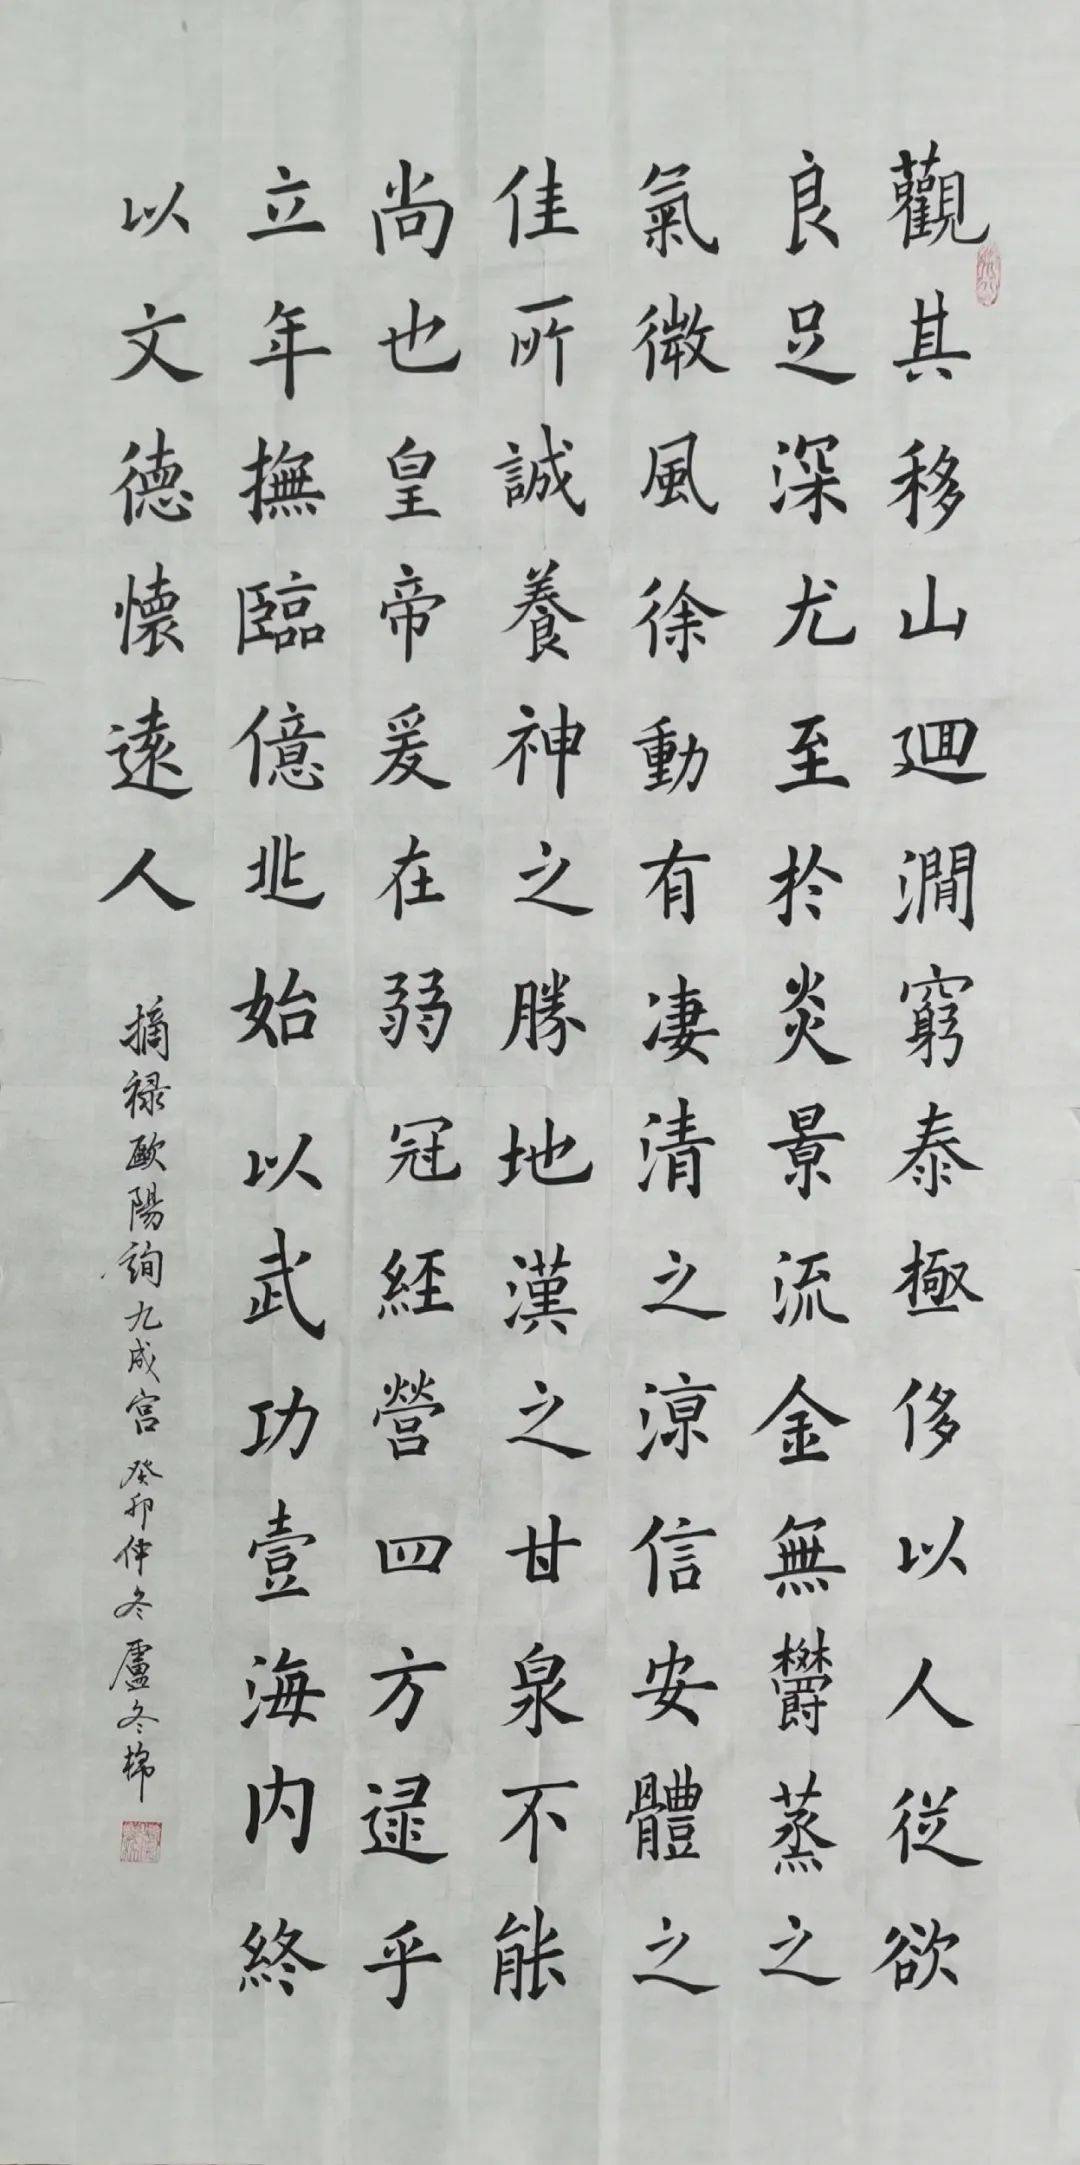 觀其移山迴澗窮泰極侈以人從欲
良足深尤至於炎景流金無鬱蒸之
氣微風徐動有凄清之涼信安體之
佳所誠養神之勝地漢之甘泉不能
尚也皇帝爰在弱冠經營四方逯乎
立年撫臨億兆始以武功壹海內終
以文德懷遠人
摘禄歐陽詢九成宮 癸卯仲冬盧冬棉